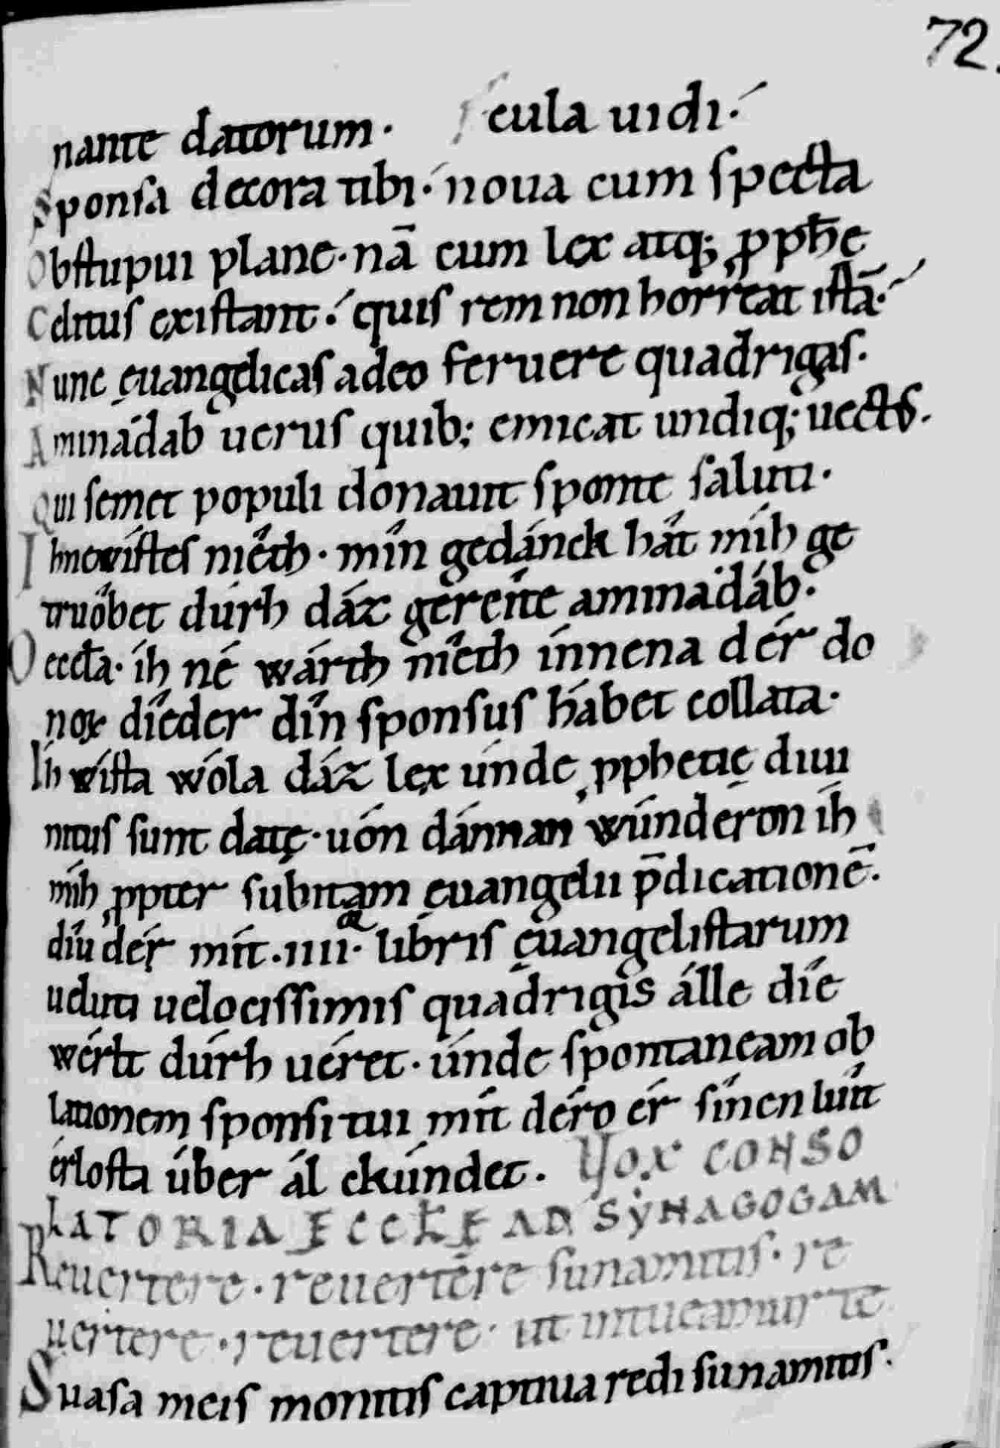 72.
nante datorum. ſcula uidi.
Sponſa decora tibi. noua cum ſpecta
Obſtupui plane. nā cum lex atq; ꝓph̄ę
Celitus exiſtant. quis rem non horreat iſtā.
Nunc ęuangelicas adeo feruere quadrigaſ.
Aminadab uerus quib; emicat undiq; uectus.
Qui ſemet populi donauit ſponte ſaluti.
Ih newiſtes nîeth. mîn gedánck hât mih ge
truôbet dúrh dáz gereíte aminadáb.
O ecc̄ła. ih né wárth nîeth ínnena dér do
nox dîeder dîn ſponſus hábet collata.
Ih wíſta wóla dáz lex únde ꝓphetię diui
nitus ſunt datę. uón dánnan wúnderon ih
mih ꝓpter ſubitam ęuangelii p̄dicationē.
dîu dér mít .IIII. libris ęuangeliſtarum
ueluti uelociſſimis quadrigis álle díe
wérlt dúrh uéret. únde ſpontaneam ob
lationem ſponſi tui mít déro ér ſînen luít
érloſta úber ál ckúndet. VOX CONSO
LATORIA ECCŁĘ AD SYNAGOGAM
Reuertere. reuertere ſunamitis. re
uertere. reuertere. ut intueamur te
Suaſa meis monitis captiua redi ſunamitiſ.